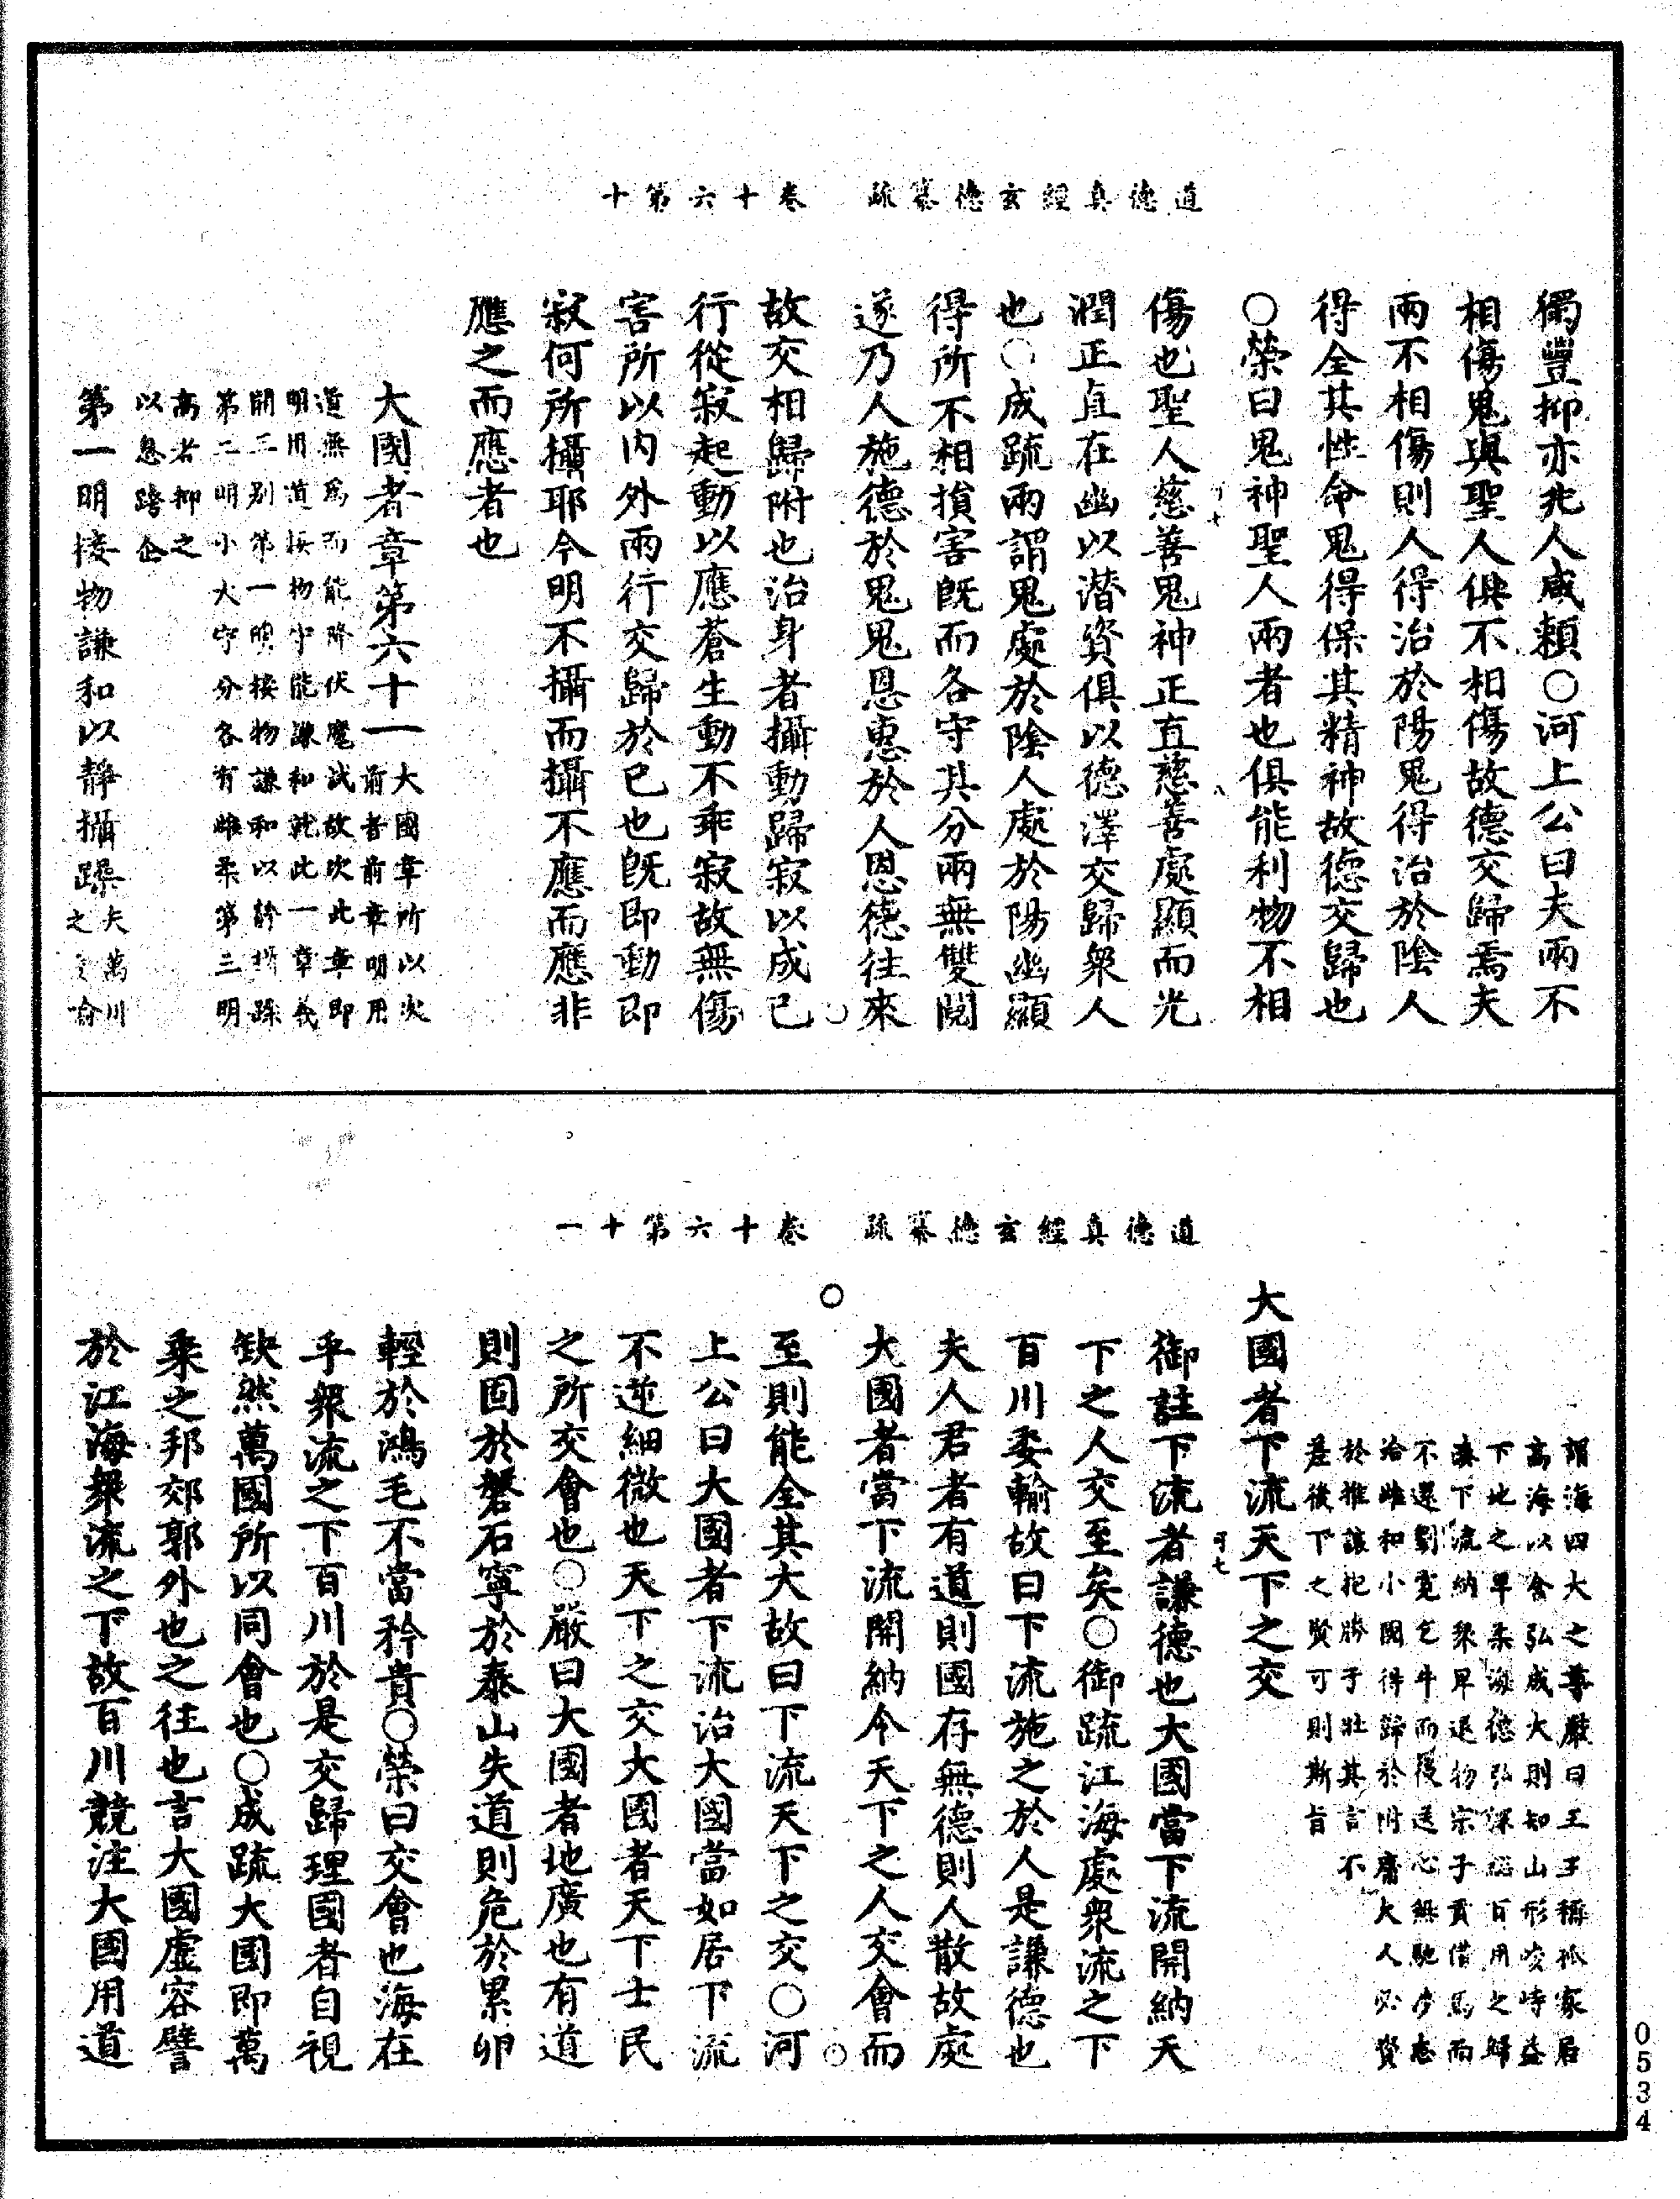 道德真經玄德纂疏　卷十六第十
獨豐抑亦兆人咸賴○河上公曰夫兩不
相傷鬼與聖人俱不相傷故德交歸焉夫
兩不相傷則人得治於陽鬼得治於陰人
得全其性命鬼得保其精神故德交歸也
○榮曰鬼神聖人兩者也俱能利物不相
傷也聖人慈善鬼神正直慈善處顯而光
潤正直在幽以潛資俱以德澤交歸衆人
也○成疏兩謂鬼處於陰人處於陽幽顯
得所不相損害既而各守其分兩無雙閱
遂乃人施德於鬼鬼恩惠於人恩德往來
故交相歸附也治身者攝動歸寂以成己
行從寂起動以應蒼生動不乖寂故無傷
害所以內外兩行交歸於己也既即動即
寂何所攝耶今明不攝而攝不應而應非
應之而應者也
大國者章第六十一
大國章所以次
前者前章明用
道無為而能降伏魔試故次此章即
明用道接物守能謙和就此一章義
開三別第一明接物謙和以靜攝躁
第二明小大守分各有雌柔第三明
高者抑之
以息躋企
第一明接物謙和以靜攝躁
夫萬川
之 喻
道德真經玄德纂疏　卷十六第十一
謂海四大之尊嚴曰王王稱孤寡居
高海以含弘成大則知山形峻峙益
下地之卑柔海德弘深 百用之歸
湊下流納衆卑退物宗子貢借馬而
不還劉寬乞牛而後送心無馳步志
洽雌和小國得歸於附庸大人必賢
於推讓抱勝于壯其言不
差後下之賢可則斯旨
大國者下流天下之交
御註下流者謙德也大國當下流開納天
下之人交至矣○御疏江海處衆流之下
百川委輸故曰下流施之於人是謙德也
夫人君者有道則國存無德則人散故處
大國者當下流開納令天下之人交會而
至則能全其大故曰下流天下之交○河
上公曰大國者下流治大國當如居下流
不逆細微也天下之交大國者天下士民
之所交會也○嚴曰大國者地廣也有道
則固於磐石寧於泰山失道則危於累卵
輕於鴻毛不當矜貴○榮曰交會也海在
乎衆流之下百川於是交歸理國者自視
缺然萬國所以同會也○成疏大國即萬
乘之邦郊郭外也之往也言大國虛容譬
於江海衆流之下故百川競注大國用道
0534